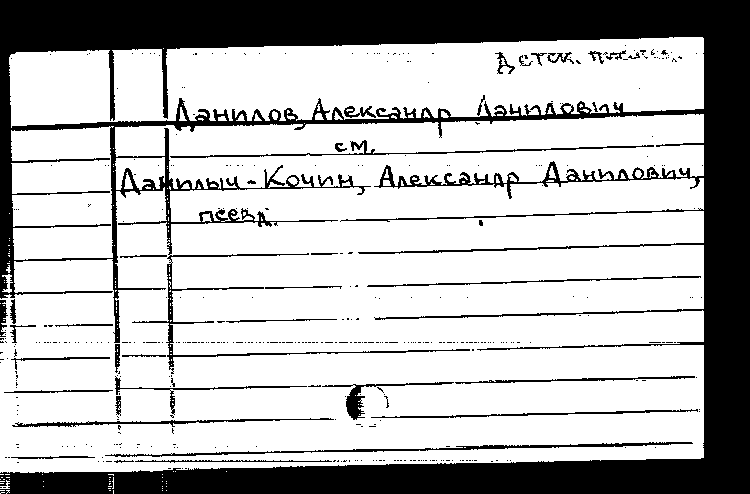 Детск. писател.
Данилов, Александр Данилович
см.
Данилыч-Кочин, Александр Данилович,
псевд.